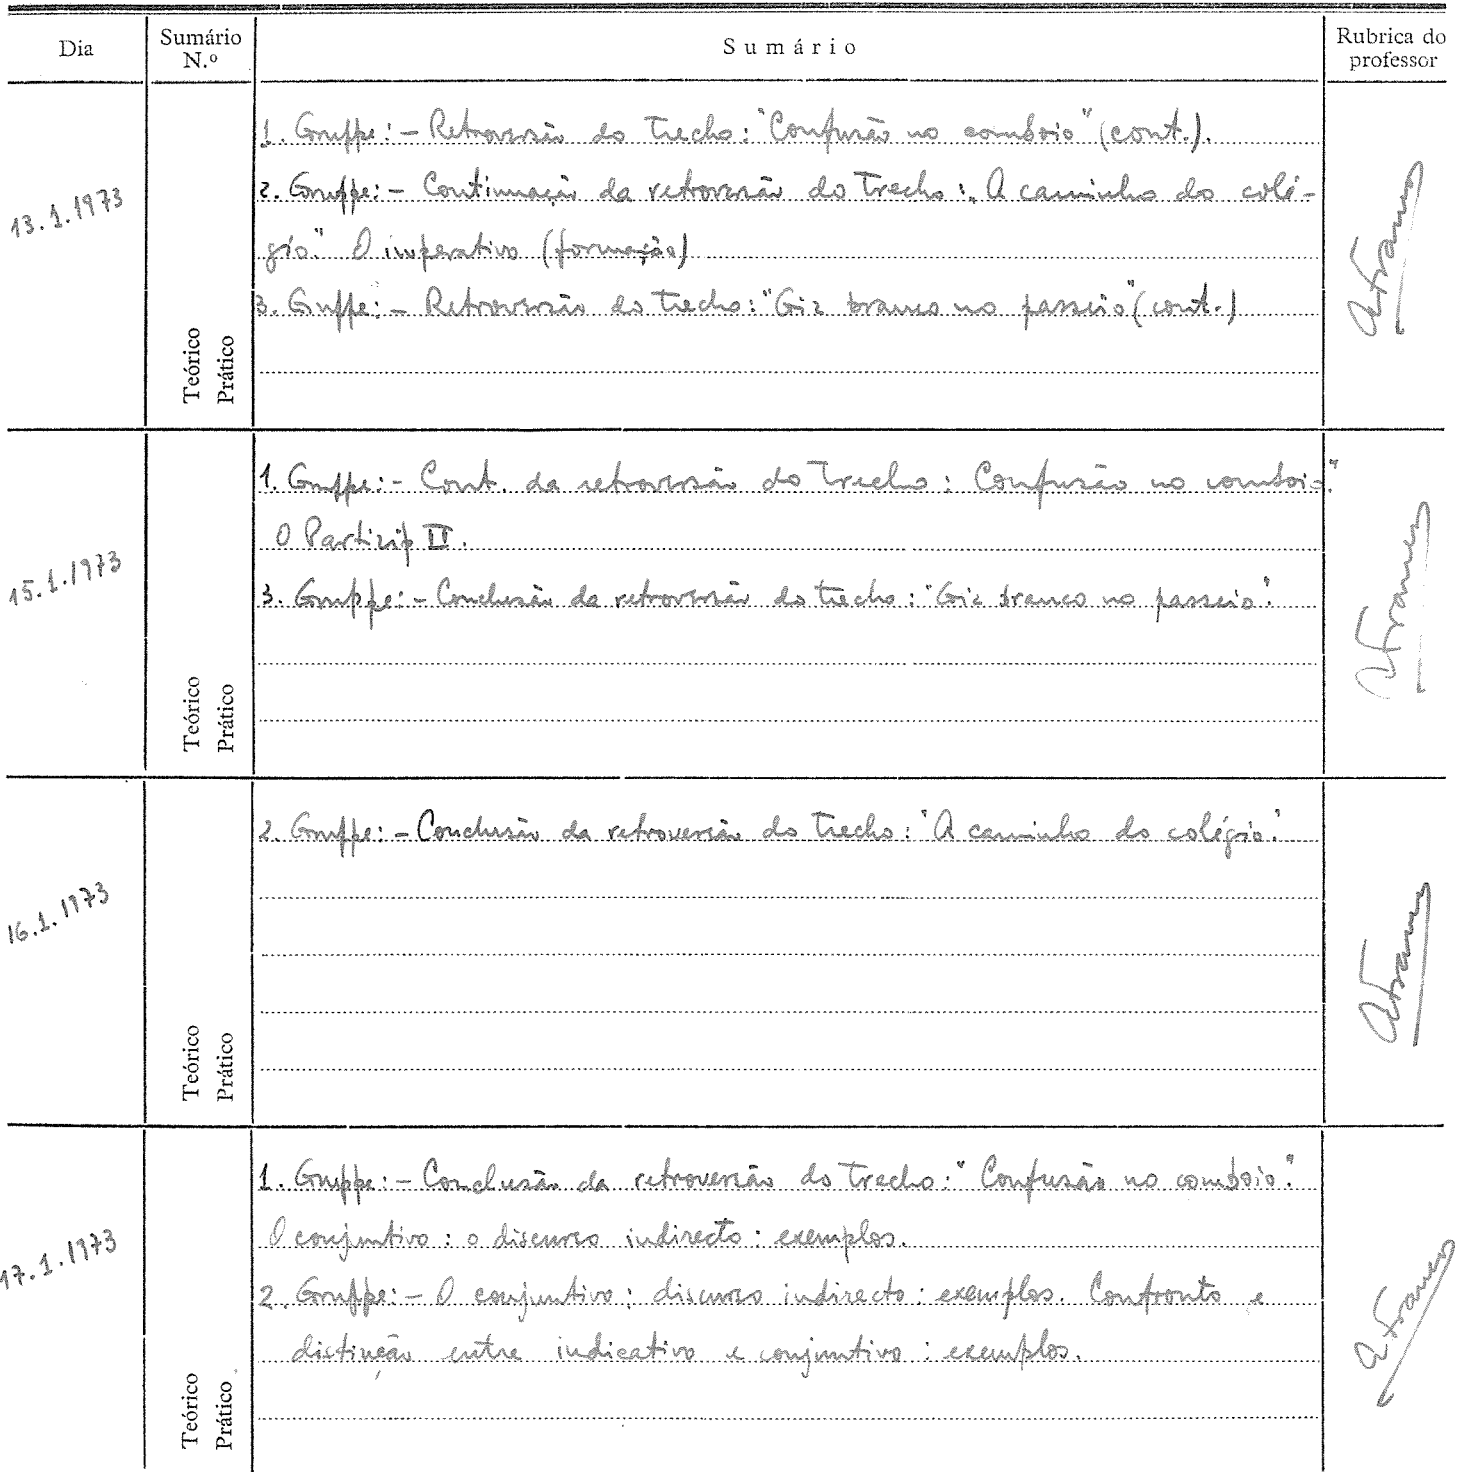 Dia
Sumário N.º
Sumário
Rubrica do professor
13.1.1973
1. Gruppe: - Retroversão do trecho: "Confusão no comboio" (cont.).
2. Gruppe: - Continuação da retroversão do trecho: „A caminho do colé-
gio". O imperativo (formação)
3. Gruppe: - Retroversão do trecho: "Giz branco no passeio" (cont.)
Teórico
Prático
15.1.1973
1. Gruppe: - Cont. da retroversão do trecho: Confusão no comboio".
O Partizip II.
3. Gruppe: - Conclusão da retroversão do trecho: "Giz branco no passeio".
Teórico
Prático
16.1.1973
2. Gruppe: - Conclusão da retroversão do trecho: "A caminho do colégio".
Teórico
Prático
17.1.1973
1. Gruppe: - Conclusão da retroversão do trecho: "Confusão no comboio".
O conjuntivo: o discurso indirecto: exemplos.
2. Gruppe: - O conjuntivo: discurso indirecto: exemplos. Confronto e
distinção entre indicativo e conjuntivo: exemplos.
Teórico
Prático